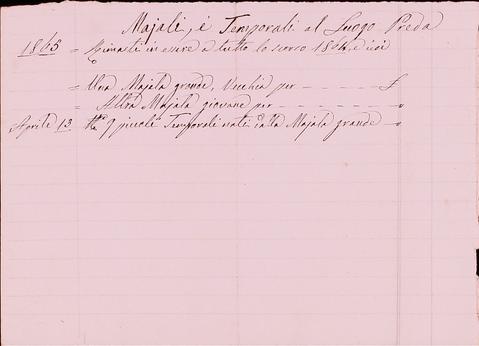 Majali, i Temporali al Luogo Preda
1865 = Rimasti in essere a tutto lo scorso 1864, e cioè
= Una Majala grande, Vecchia per - - - - - £
= Altra Majala giovane per - - - - - "
Aprile 13 9 piccoli Temporali nati dalla Majala grande - "